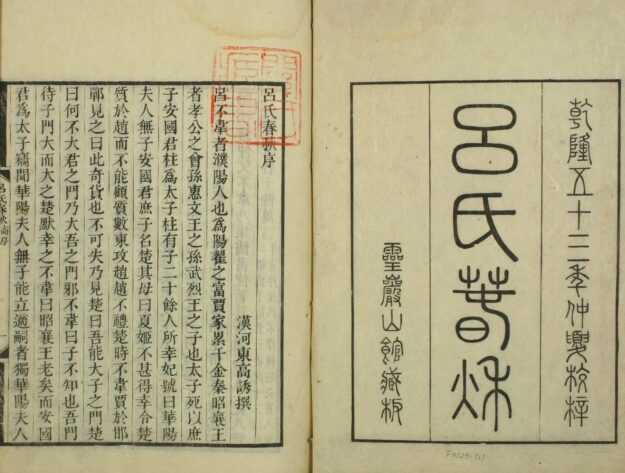 乾隆五十三年仲夏校梓
呂氏春秋
靈巖山館藏板
呂氏春秋序
漢河東高誘撰
呂不韋者濮陽人也為陽翟之富賈家累千金秦昭襄王
者孝公之曾孫惠文王之孫武烈王之子也太子死以庶
子安國君柱為太子柱有子二十餘人所幸妃號曰華陽
夫人無子安國君庶子名楚其母曰夏姬不甚得幸令楚
質於趙而不能顧質數東攻趙趙不禮楚時不韋賈於邯
鄲見之曰此奇貨也不可失乃見楚曰吾能大子之門楚
曰何不大君之門乃大吾之門邪不韋曰子不知也吾門
待子門大而大之楚默幸之不韋曰昭襄王老矣而安國
君為太子竊聞華陽夫人無子能立適嗣者獨華陽夫人
呂氏春秋高序